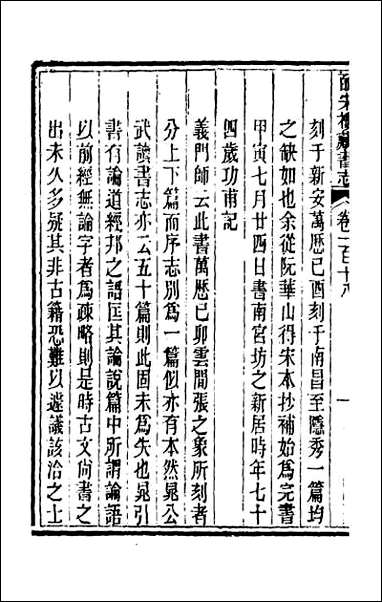 皕宋樓藏書志
卷一百十八
一
刻于新安萬歷己酉刻于南昌至隱秀一篇均
之缺如也余從阮華山得宋本抄補始爲完書
甲寅七月廿四日書南宮坊之新居時年七十
四歲功甫記
義門師云此書萬歷己卯雲間張之象所刻者
分上下篇而序志別爲一篇似亦有本然晁公
武讀書志亦云五十篇則此固未爲失也晁引
書有論道經邦之語匡其論說篇中所謂論語
以前經無論字者爲疎略則是時古文尚書之
出未久多疑其非古籍恐難以遽議該洽之士